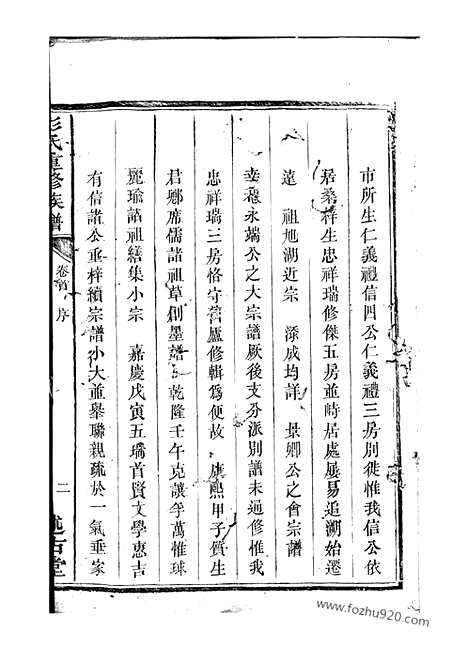 市所生仁義禮信四公仁義禮三房别徙惟我信公依
居桑梓生忠祥瑞修傑五房並峙居處屢易追溯始遷
遠 祖旭湖近宗 添成均詳 景卿公之會宗譜
妾 永端公之大宗譜厥後支分派别譜未遍修惟我
忠祥瑞三房恪守舊廬修輯爲便故 康熙甲子質生
君鄉席儒諸祖草創墨譜乾隆壬午克讓孚萬惟球
麗瑜諸祖繕集小宗 嘉慶戊寅五瑞首賢文學惠吉
有信諸公重梓續宗譜小大並舉聯親疏於一氣垂家
彭氏重修族譜
卷首 序
二
述古堂
www.fozhu920.com